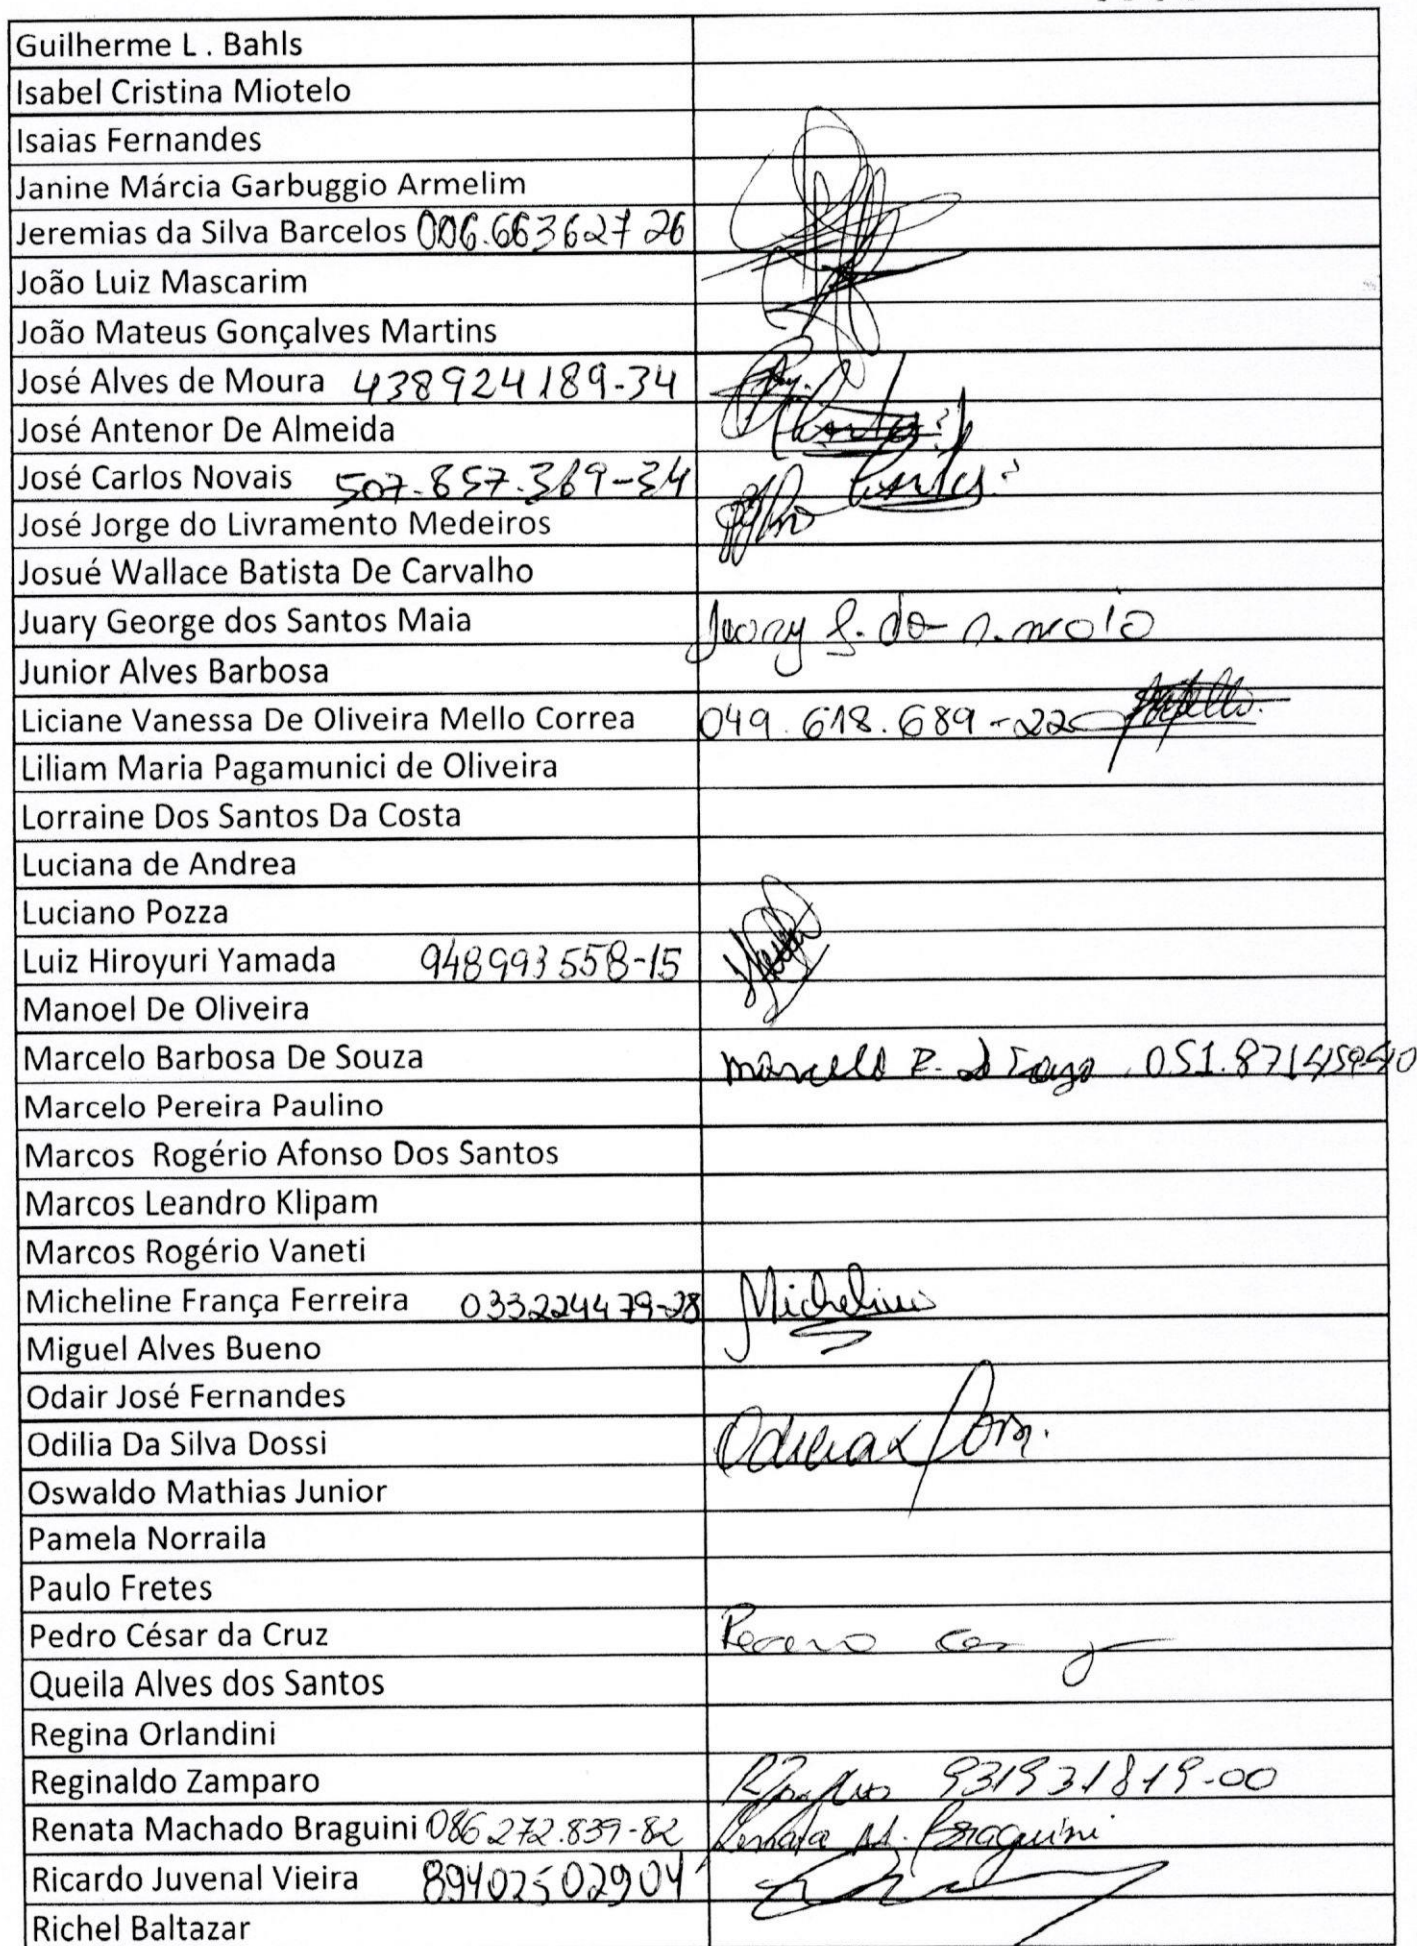 Guilherme L . Bahls
Isabel Cristina Miotelo
Isaias Fernandes
Janine Márcia Garbuggio Armelim
Jeremias da Silva Barcelos 006.663627 26
João Luiz Mascarim
João Mateus Gonçalves Martins
José Alves de Moura 438924189-34
José Antenor De Almeida
José Carlos Novais 507.857.369-34
José Jorge do Livramento Medeiros
Josué Wallace Batista De Carvalho
Juary George dos Santos Maia
Junior Alves Barbosa
Liciane Vanessa De Oliveira Mello Correa 049.618.689-22
Liliam Maria Pagamunici de Oliveira
Lorraine Dos Santos Da Costa
Luciana de Andrea
Luciano Pozza
Luiz Hiroyuri Yamada 948993558-15
Manoel De Oliveira
Marcelo Barbosa De Souza
Marcelo Pereira Paulino
Marcos Rogério Afonso Dos Santos
Marcos Leandro Klipam
Marcos Rogério Vaneti
Micheline França Ferreira 033224479-28
Miguel Alves Bueno
Odair José Fernandes
Odilia Da Silva Dossi
Oswaldo Mathias Junior
Pamela Norraila
Paulo Fretes
Pedro César da Cruz
Queila Alves dos Santos
Regina Orlandini
Reginaldo Zamparo 931931819-00
Renata Machado Braguini 086.272.839-82 Renata M. Braguini
Ricardo Juvenal Vieira 89402502904
Richel Baltazar